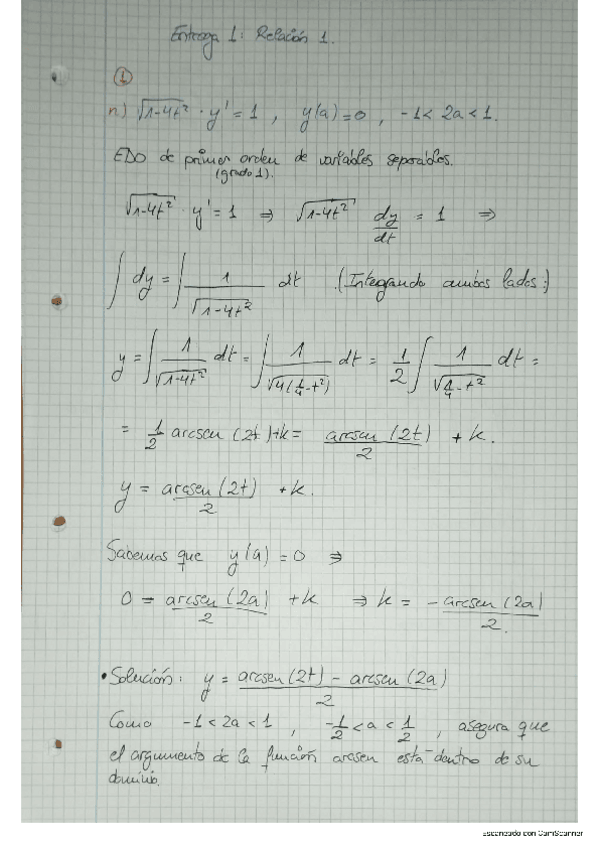 Entrega 1: Relación 1.
1
n) √(1-4t²) · y' = 1 , y(a)=0 , -1< 2a < 1.
EDO de primer orden de variables separables.
(grado 1).
√(1-4t²) · y' = 1 ⇒ √(1-4t²) dy/dt = 1 ⇒
∫ dy = ∫ 1/√(1-4t²) dt (Integrando ambos lados:)
y = ∫ 1/√(1-4t²) dt = ∫ 1/√(4(1/4-t²)) dt = 1/2 ∫ 1/√(1/4-t²) dt =
= 1/2 arcsen (2t)+k = arcsen (2t)/2 + k.
y = arcsen (2t)/2 + k.
Sabemos que y(a) = 0 ⇒
0 = arcsen (2a)/2 + k ⇒ k = -arcsen (2a)/2.
• Solución: y = (arcsen (2t) - arcsen (2a))/2
Como -1 < 2a < 1 , -1/2 < a < 1/2 , asegura que
el argumento de la función arcsen está dentro de su
dominio.
Escaneado con CamScanner